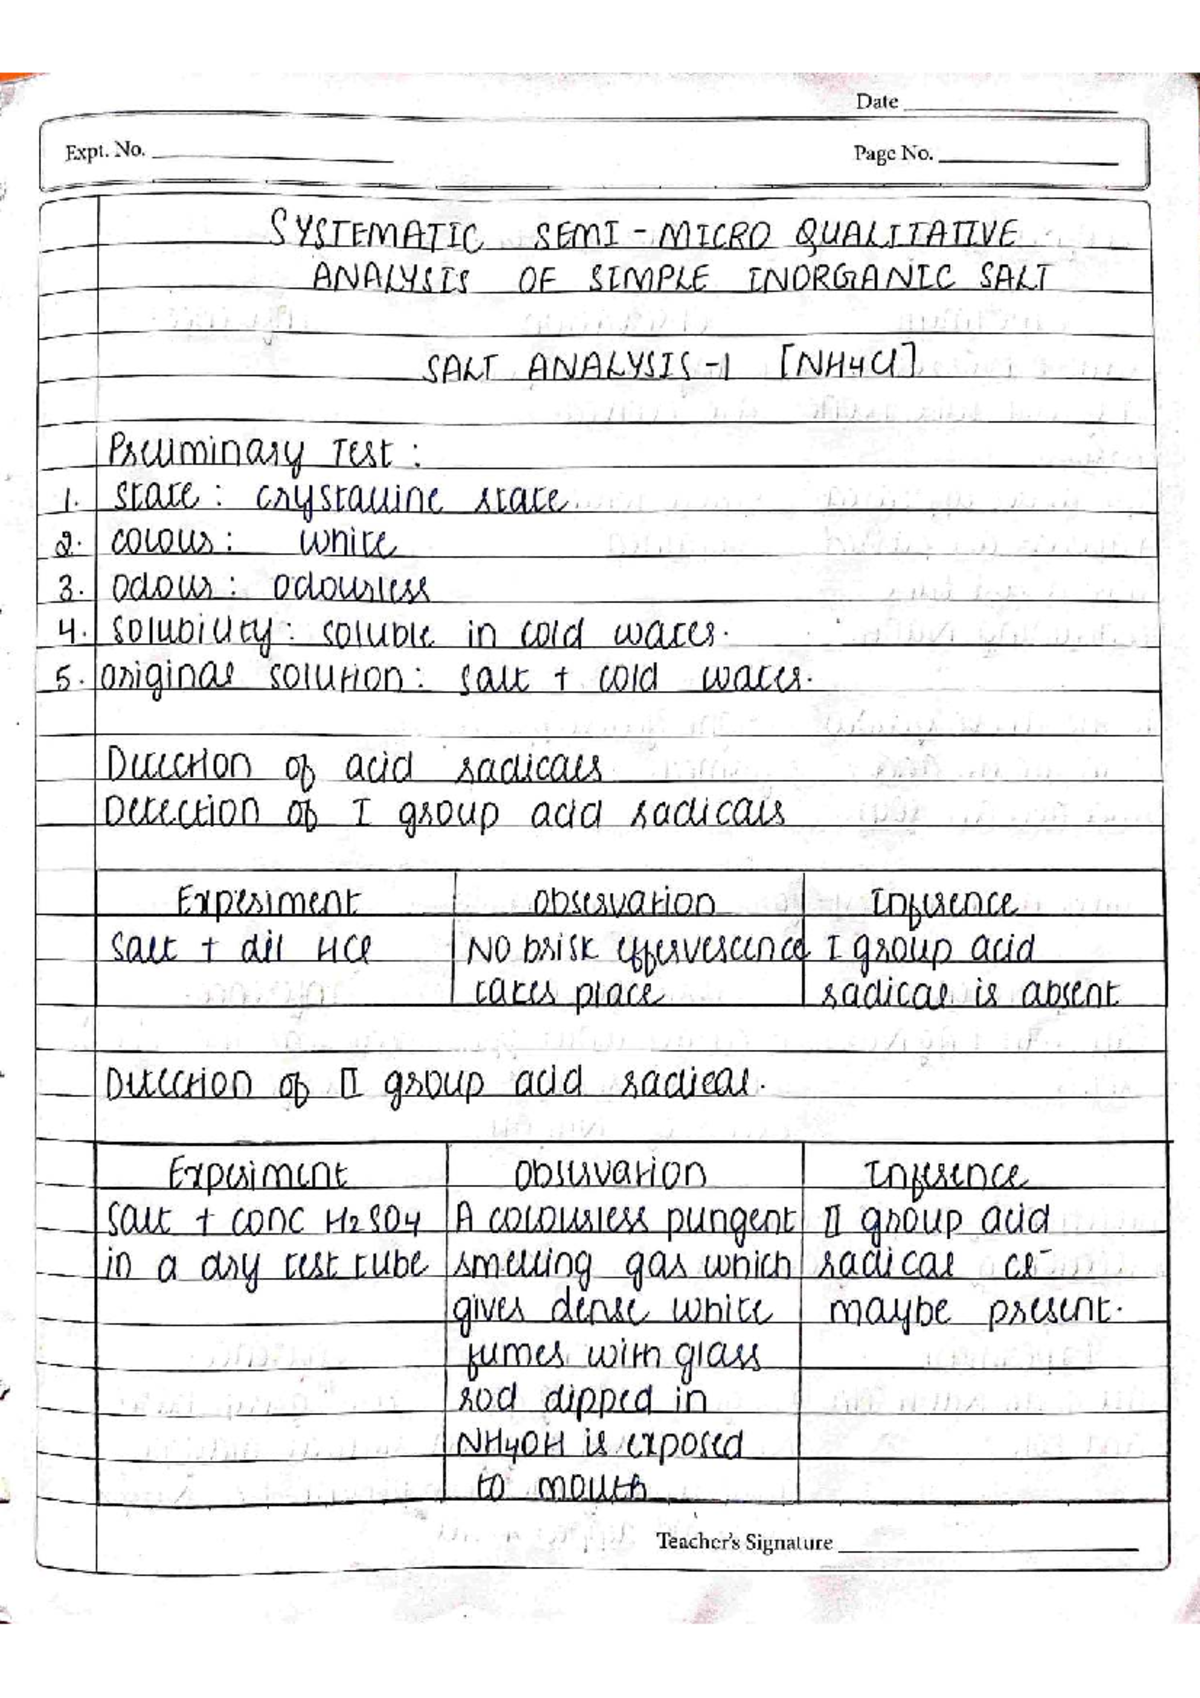 Date
Expt. No.
Page No.
SYSTEMATIC SEMI-MICRO QUALITATIVE
ANALYSIS OF SIMPLE INORGANIC SALT
SALT ANALYSIS-1 [NH4Cl]
Preliminary Test:
1. State: crystalline state
2. colour: white
3. odour: odourless
4. solubility: soluble in cold water.
5. original solution: salt + cold water.
Detection of acid radicals
Detection of I group acid radicals
Experiment Observation Inference
Salt + dil HCl No brisk effervescence I group acid
takes place radical is absent
Detection of II group acid radical.
Experiment Observation Inference
Salt + conc H2SO4 A colourless pungent II group acid
in a dry test tube smelling gas which radical Cl-
gives dense white maybe present.
fumes with glass
rod dipped in
NH4OH is exposed
to mouth
Teacher's Signature